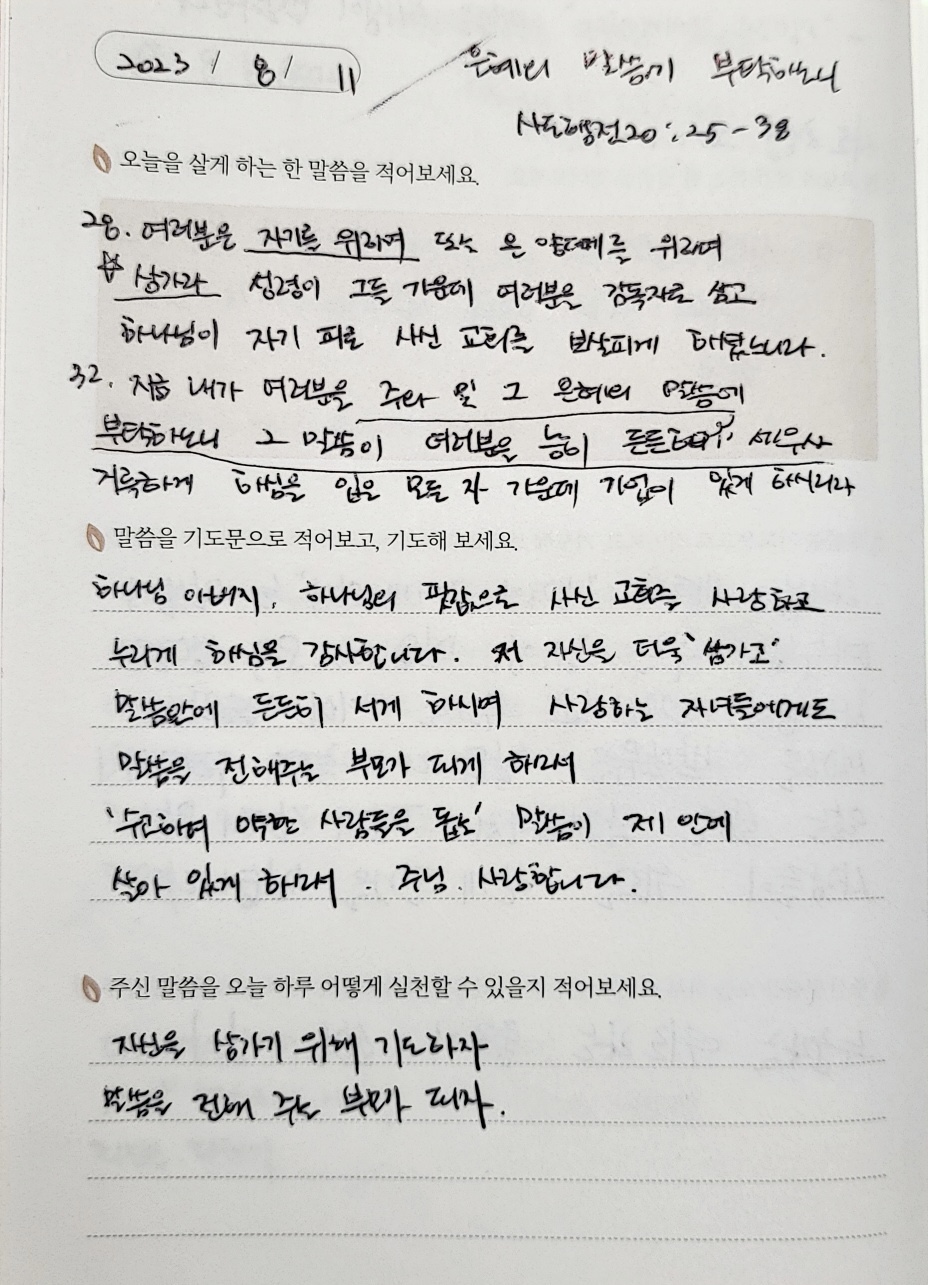 2023 / 8 / 11
은혜의 말씀에 부탁하노니
사도행전20:25-38
오늘을 살게 하는 한 말씀을 적어보세요.
28. 여러분은 자기를 위하여 또는 온 양떼를 위하여
☆ 삼가라 성령이 그들 가운데 여러분을 감독자로 삼고
하나님이 자기 피로 사신 교회를 보살피게 하셨느니라.
32. 지금 내가 여러분을 주와 및 그 은혜의 말씀에
부탁하노니 그 말씀이 여러분을 능히 든든히 세우사
거룩하게 하심을 입은 모든 자 가운데 기업이 있게 하시리라
말씀을 기도문으로 적어보고, 기도해 보세요.
하나님 아버지. 하나님의 핏값으로 사신 교회를 사랑하고
누리게 하심을 감사합니다. 저 자신을 더욱 '삼가조'
말씀안에 든든히 서게 하시며 사랑하는 자녀들에게도
말씀을 전해주는 부모가 되게 하여서
'수고하여 약한 사람들을 돕는' 말씀이 제 안에
살아 있게 하여서. 주님. 사랑합니다.
주신 말씀을 오늘 하루 어떻게 실천할 수 있을지 적어보세요.
자신을 삼가기 위해 기도하자
말씀을 전해 주는 부모가 되자.